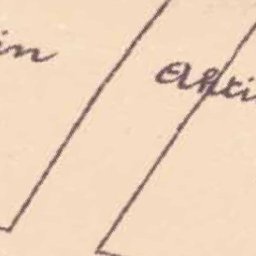 in
Akti